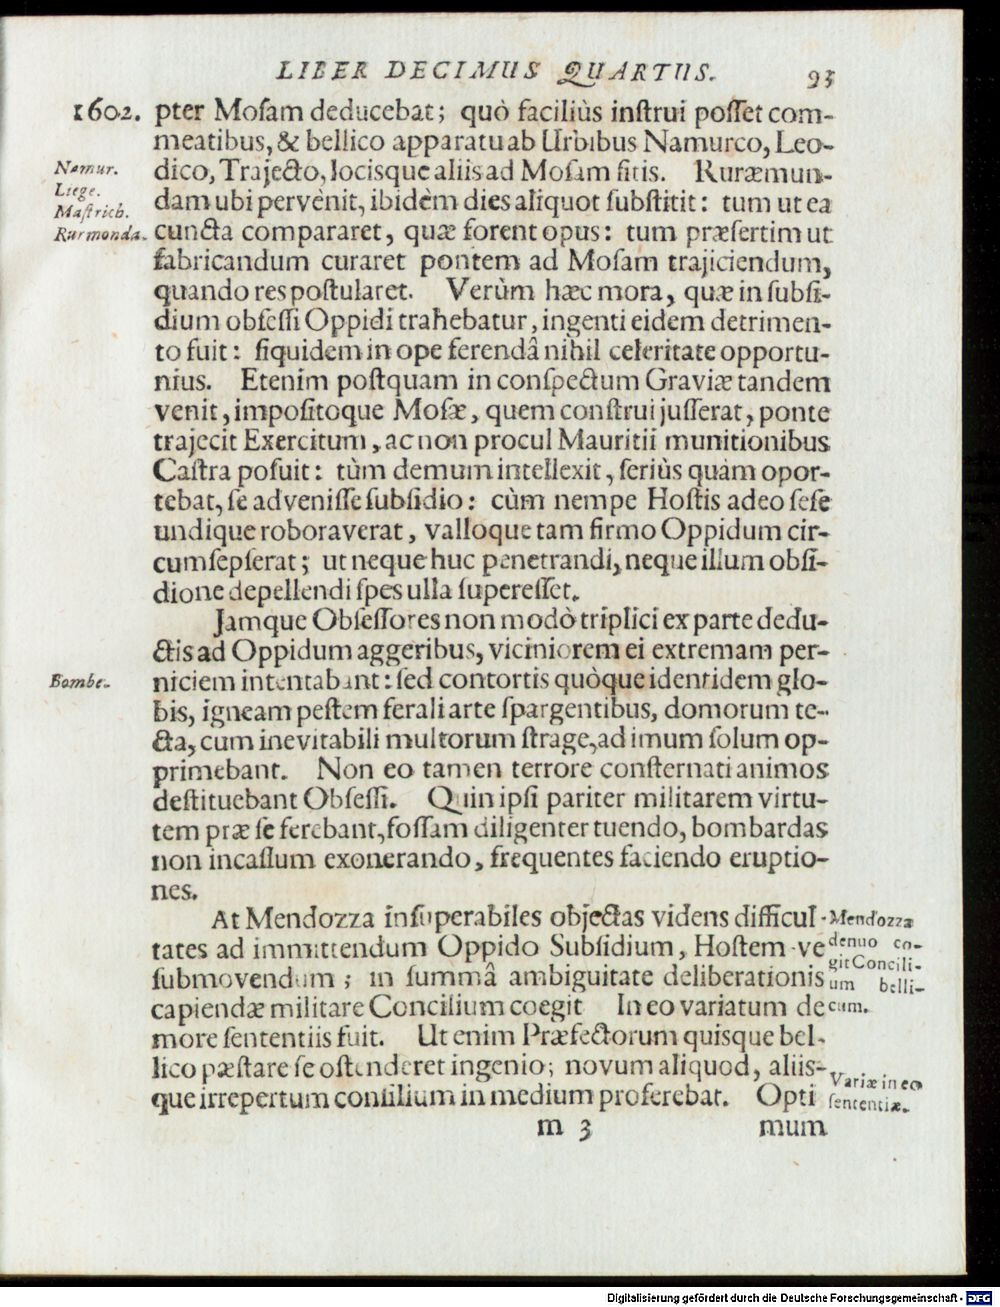 LIBER DECIMUS QUARTUS. 93
1602. pter Mosam deducebat; quò faciliùs instrui posset com-
meatibus, & bellico apparatu ab Urbibus Namurco, Leo-
Namur. dico, Trajecto, locisque aliis ad Mosam sitis. Ruræmun-
Liege.
Mastrich. dam ubi pervènit, ibidèm dies aliquot substitit: tum ut ea
Rurmonda. cuncta compararet, quæ forent opus: tum præsertim ut
fabricandum curaret pontem ad Mosam trajiciendum,
quando res postularet. Verùm hæc mora, quæ in subsi-
dium obsessi Oppidi trahebatur, ingenti eidem detrimen-
to fuit: siquidem in ope ferendâ nihil celeritate opportu-
nius. Etenim postquam in conspectum Graviæ tandem
venit, impositoque Mosæ, quem construi jusserat, ponte
trajecit Exercitum, ac non procul Mauritii munitionibus
Castra posuit: tùm demum intellexit, seriùs quàm opor-
tebat, se advenisse subsidio: cùm nempe Hostis adeo sese
undique roboraverat, valloque tam firmo Oppidum cir-
cumsepserat; ut neque huc penetrandi, neque illum obsi-
dione depellendi spes ulla superesset.
Jamque Obsessores non modò triplici ex parte dedu-
ctis ad Oppidum aggeribus, viciniorem ei extremam per-
Bombe. niciem intentabant: sed contortis quòque identidem glo-
bis, igneam pestem ferali arte spargentibus, domorum te-
cta, cum inevitabili multorum strage, ad imum solum op-
primebant. Non eo tamen terrore consternati animos
destituebant Obsessi. Quin ipsi pariter militarem virtu-
tem præ se ferebant, fossam diligenter tuendo, bombardas
non incassum exonerando, frequentes faciendo eruptio-
nes.
At Mendozza insuperabiles objectas videns difficul- Mendozza
tates ad immittendum Oppido Subsidium, Hostem ve denuo co-
submovendum; in summâ ambiguitate deliberationis git Concili-
um belli-
capiendæ militare Concilium coegit In eo variatum de cum.
more sententiis fuit. Ut enim Præfectorum quisque bel-
lico pæstare se ostenderet ingenio; novum aliquod, aliis-
Variæ in eo
que irrepertum consilium in medium proferebat. Opti sententiæ.
m 3 mum
Digitalisierung gefördert durch die Deutsche Forschungsgemeinschaft - DFG